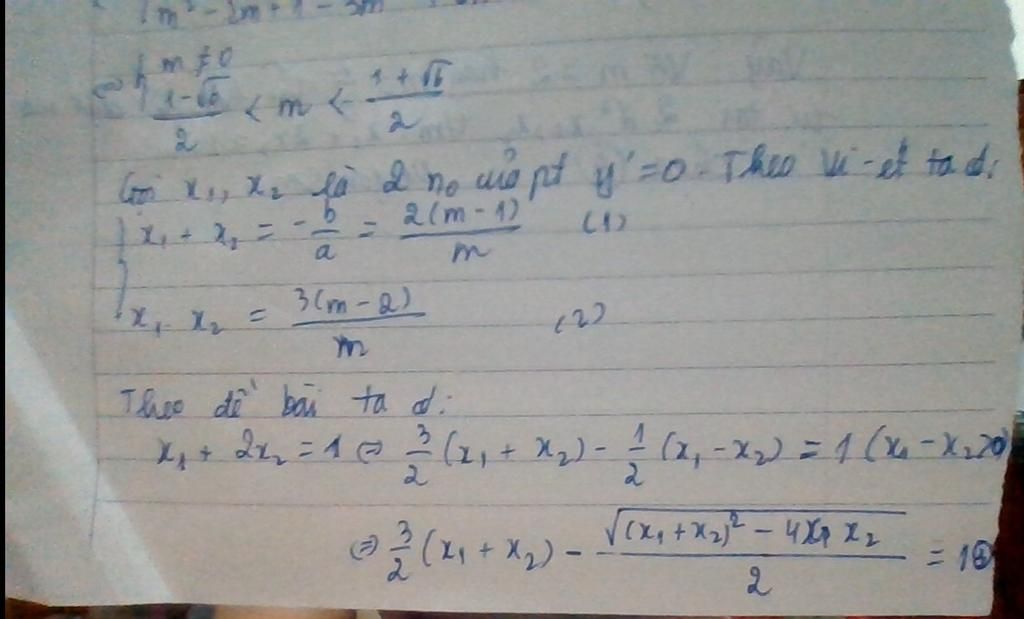 m² - 2m + 1 - 3m
⇔ { m ≠ 0
(1-√6)/2 < m < (1+√6)/2
Gọi x₁, x₂ là 2 no của pt y' = 0. Theo Vi-ét ta đ:
{ x₁ + x₂ = -b/a = 2(m-1)/m (1)
x₁ . x₂ = 3(m-2)/m (2)
Theo đề bài ta đ:
x₁ + 2x₂ = 1 ⇔ 3/2 (x₁ + x₂) - 1/2 (x₁ - x₂) = 1 (x₁ - x₂ > 0)
⇔ 3/2 (x₁ + x₂) - √((x₁ + x₂)² - 4x₁ x₂)/2 = 1